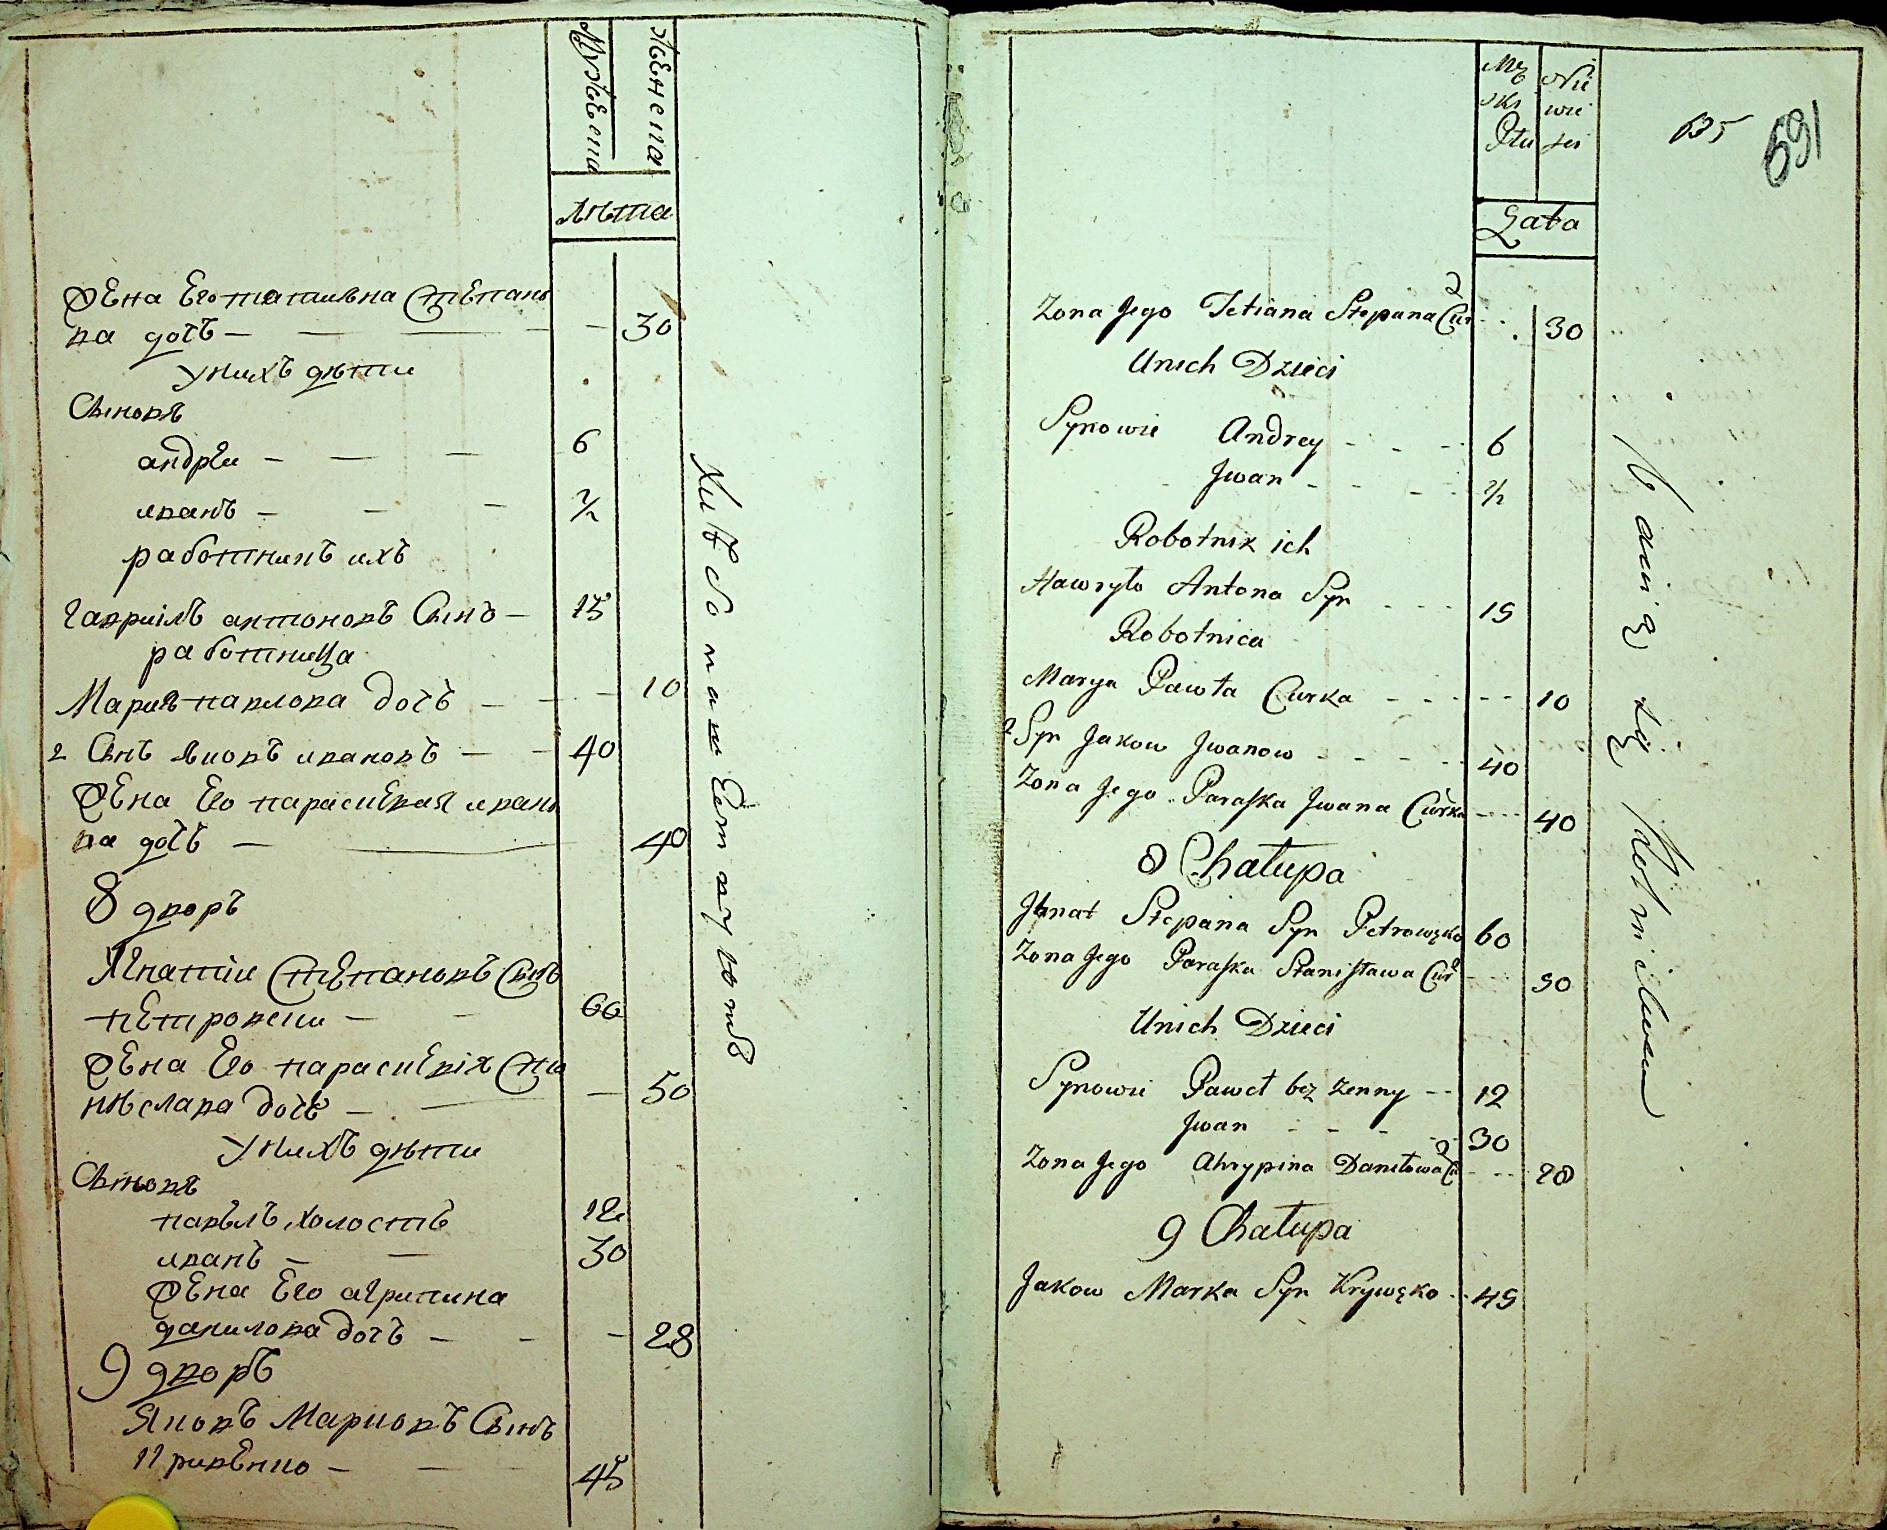 Мужеска
Женска
Лѣта
Жена Его татиѧна Степано
ва дочь — 30
у нихъ дѣти
Сыновѧ
андрѣи — 6
иванъ — 1/2
работникъ ихъ
Гавриілъ антоновъ Сынъ — 15
работница
Мариѧ павлова дочь — 10
2 Сынъ ѧковъ ивановъ — 40
Жена Его параскевиѧ ивано
ва дочь — 40
8 дворъ
Игнатіи Степановъ Сынъ
петровски — 60
Жена Его параскевіѧ Ста
нѣслава дочь — 50
у нихъ дѣти
Сыновѧ
павелъ холостъ 12
иванъ — 30
Жена Его агрипина
данилова дочь — 28
9 дворъ
Ѧковъ Марковъ Сынъ
Кривенко — 45
Mę Nie
ski wie
Płu sci
Lata
135
691
Zona Jego Tetiana Stepana Cur 30
Unich Dzieci
Synowie Andrey - - - 6
Jwan - - - 1/2
Robotnik ich
Hawryło Antona Syn - - - 15
Robotnica
Marya Pawła Curka - - - 10
2 Syn Jakow Jwanow - - - 40
Zona Jego Paraska Jwana Curka - - - 40
8 Chałupa
Jhnat Stepana Syn Petrowęko 60
Zona Jego Paraska Stanisława Cur - - - 50
Unich Dzieci
Synowie Paweł bez zenny - - 12
Jwan - - - 30
Zona Jego Ahrypina Daniłowa Cu - - - 28
9 Chałupa
Jakow Marka Syn Krywęko - - 45